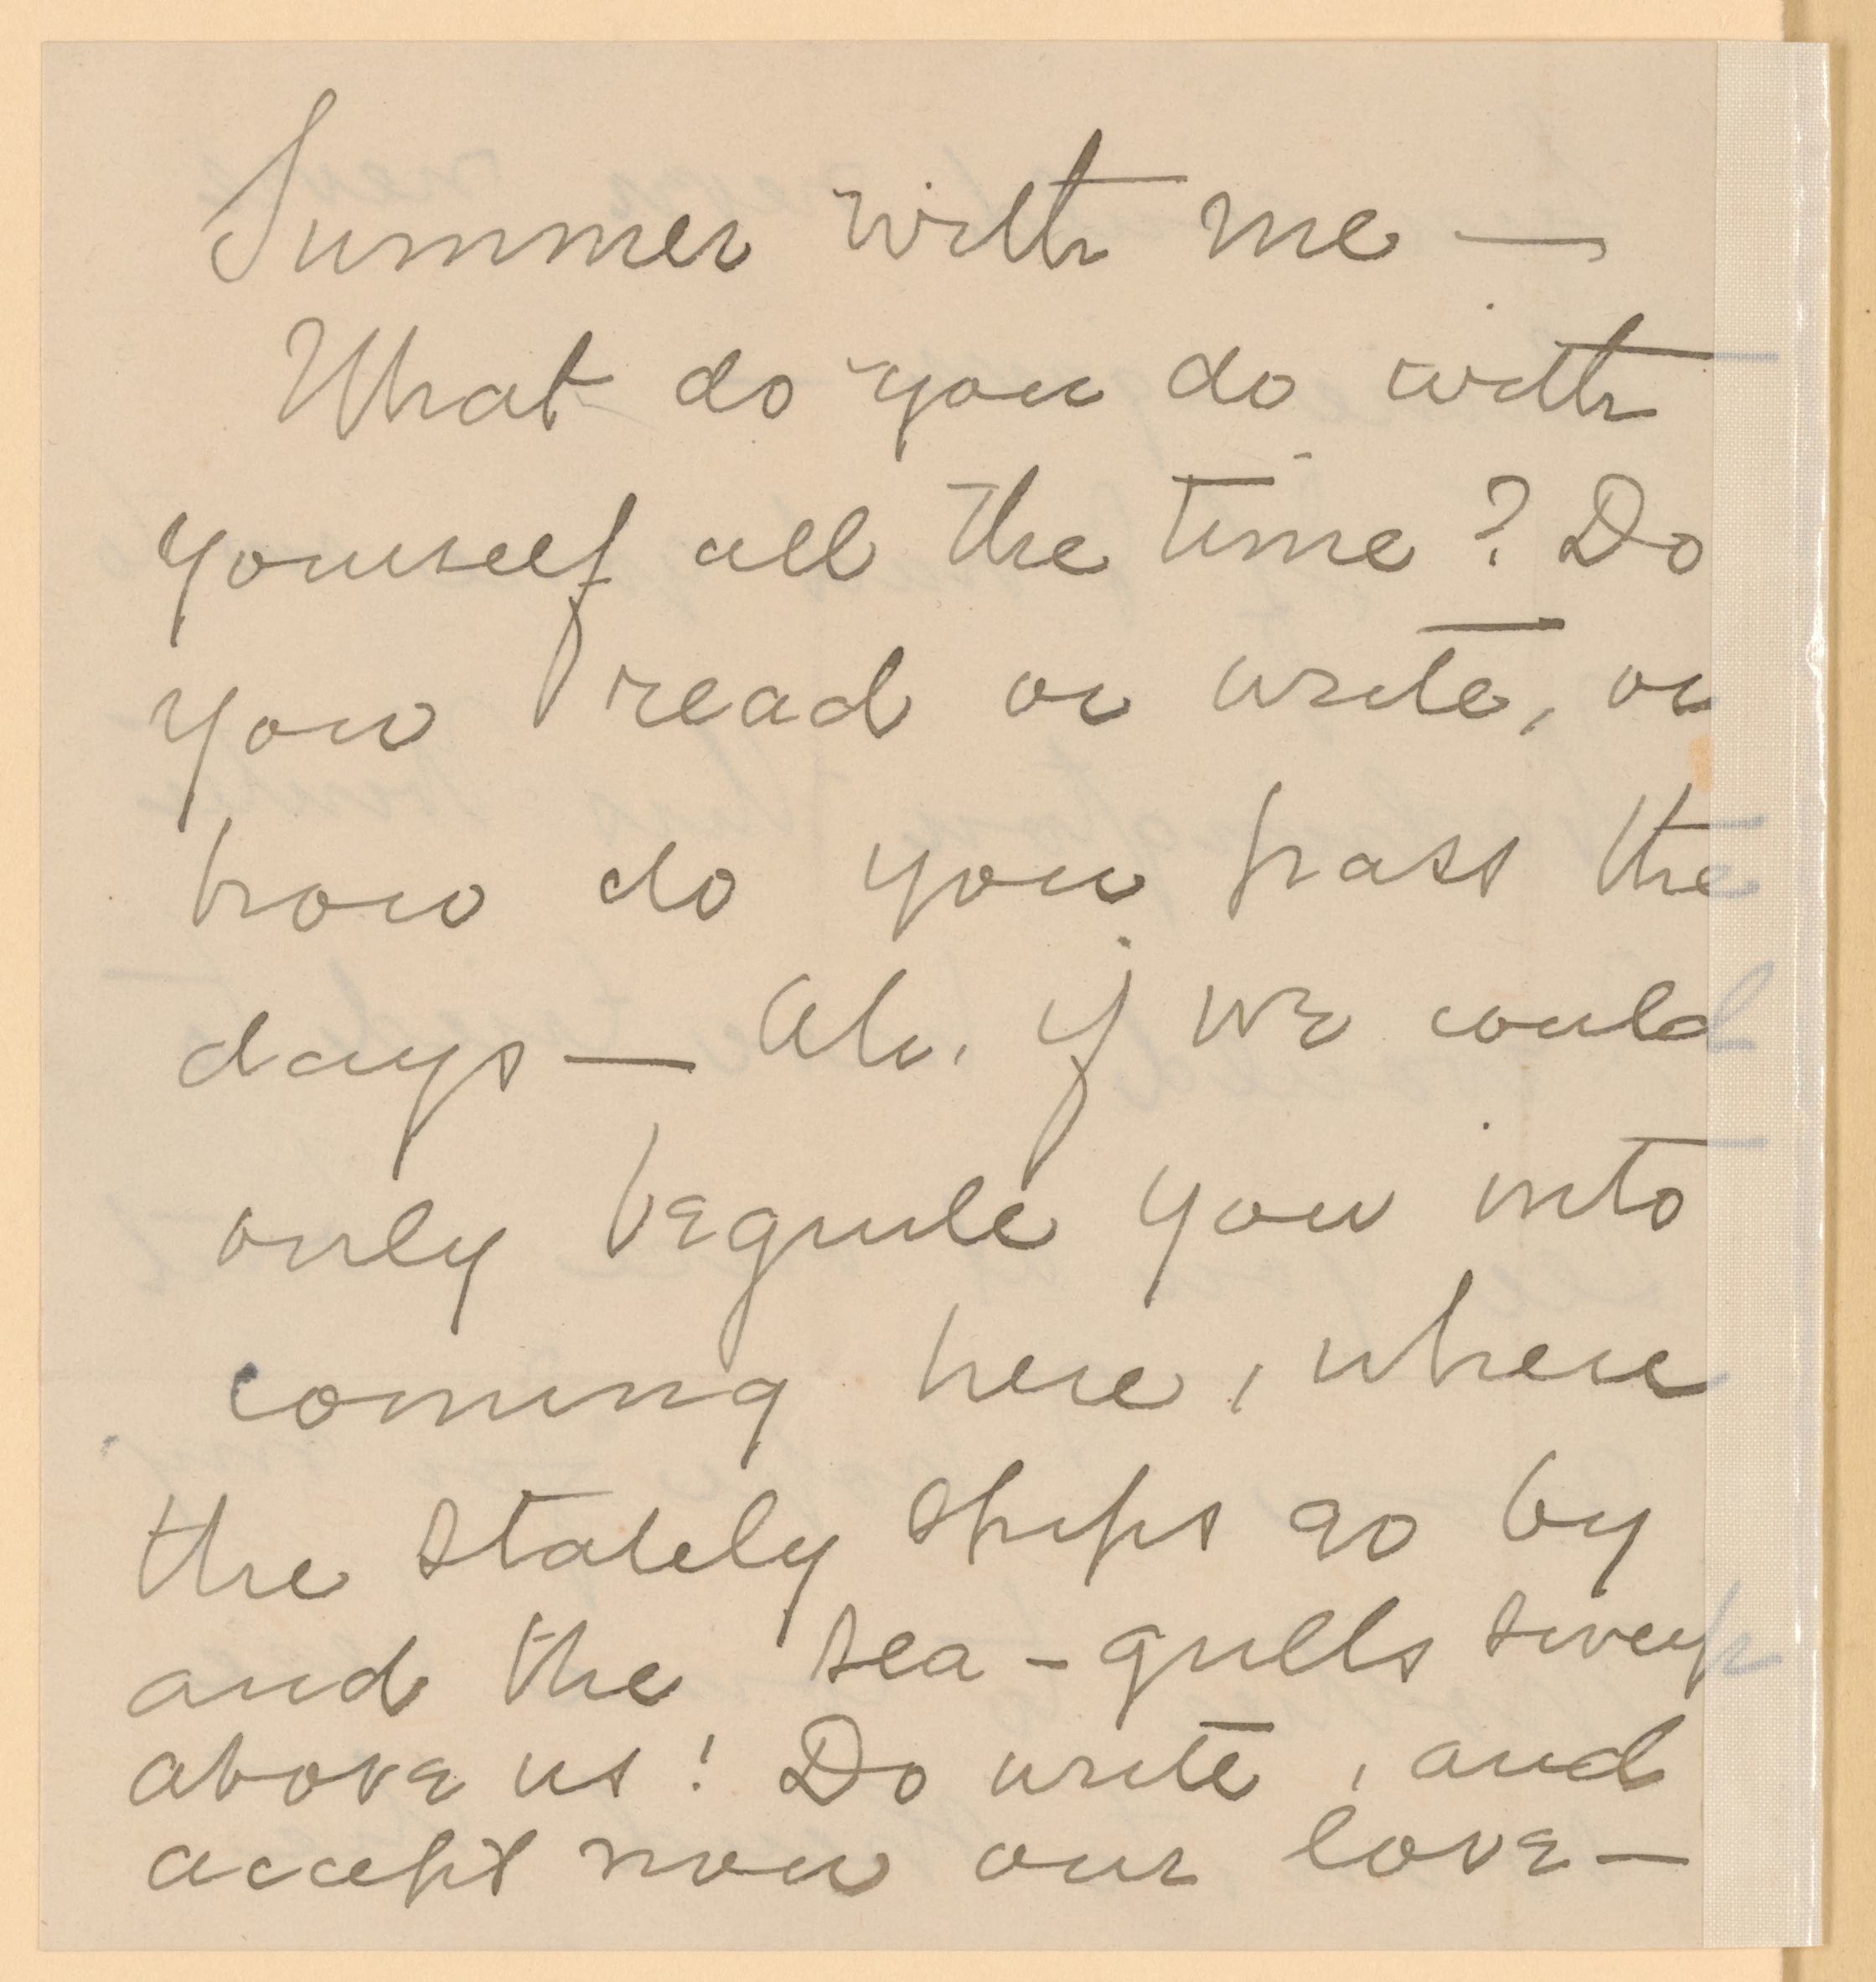 Summer with me —
What do you do with
yourself all the time? Do
you read or write, or
how do you pass the
days — Ah, if we could
only beguile you into
coming here, where
the stately ships go by
and the sea-gulls sweep
above us! Do write, and
accept now our love —